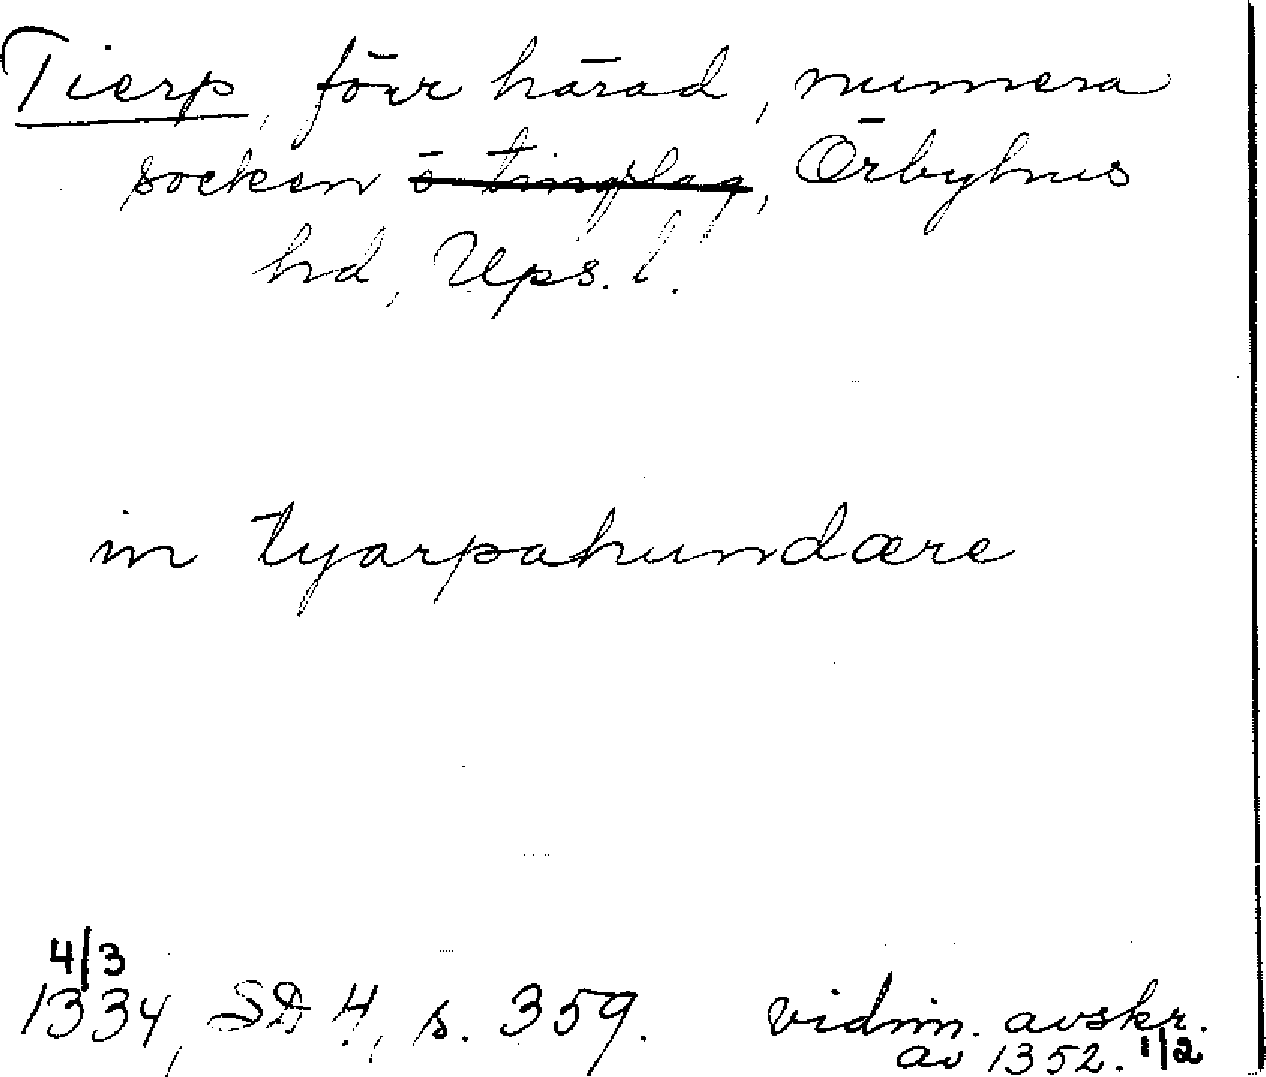 Tierp, förr härad, numera
socken o tingslag, Örbyhus
hd, Ups. l.
in tyarpahundære
4/3
1334, SD 4, s. 359. vidim. avskr.
av 1352. 11/2